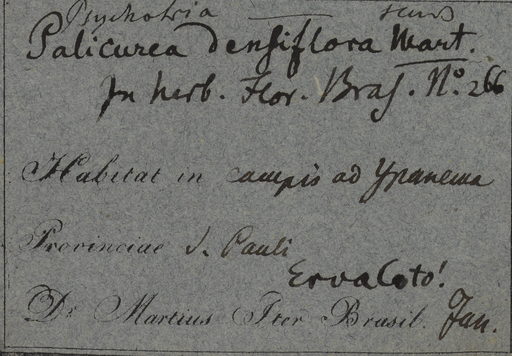 Psychotria
Palicurea densiflora Mart.
In herb. Flor. Bras. No. 266
Habitat in campis ad Ypanema
Provinciae S. Pauli
Dr. Martius Iter Brasil. Jan.